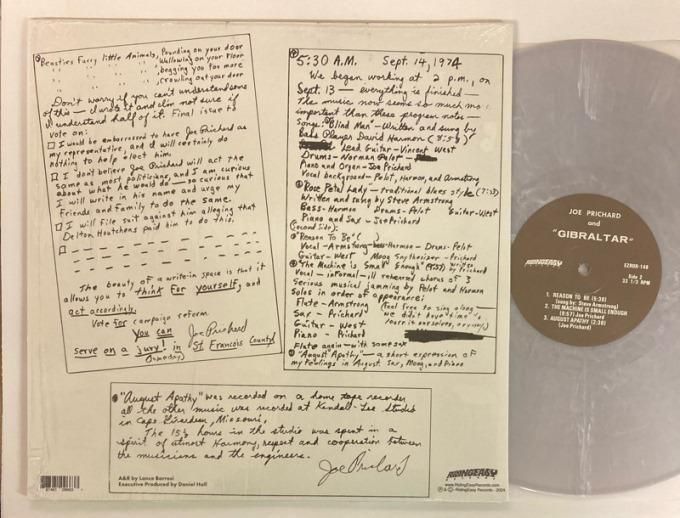 Beasties Furry little Animals, Pounding on your door
" " " " , Wallowing on your Floor
" " " " , begging you for more
" " " " , crawling out your door
Don't worry if you can't understand some
of this — I wrote it and I'm not sure if
I understand half of it. Final issue to
vote on:
☐ I would be embarrassed to have Joe Prichard as
my representative, and I will certainly do
nothing to help elect him.
☐ I don't believe Joe Prichard will act the
same as most politicians, and I am curious
about what he would do — so curious that
I will write in his name and urge my
Friends and Family to do the same.
☐ I will file suit against him alleging that
Delton Houtchens paid him to do this.
☐
The beauty of a write-in space is that it
allows you to think For yourself, and
act accordingly.
Vote for campaign reform
you can Joe Prichard
serve on a jury! in St Francois County
(someday)
5:30 A.M. Sept. 14, 1974
We began working at 2 p.m., on
Sept. 13 — everything is finished —
The music now seems so much mo
important than these program notes —
Songs: "Blind Man" — Written and sung by
Bass Player David Harmon (7:57)
Lead Guitar - Vincent West
Drums - Norman Pelot -
Piano and Organ - Joe Prichard
Vocal background - Pelot, Harmon, and Armstrong
Rose Petal Lady — traditional blues style (7:33)
Written and sung by Steve Armstrong
Bass - Harmon Drums - Pelot Guitar - West
Piano and Sax - Joe Prichard
(Second Side):
"Reason To Be" ( )
Vocal - Armstrong - bass - Harmon - Drums - Pelot
Guitar - West Moog Synthesizer - Prichard
"The Machine is Small Enough" (9:57) by Prichard
Vocal — informal, ill rehearsed chorus of 3
Serious musical jamming by Pelot and Harmon
Solos in order of appearance:
Flute - Armstrong (Feel free to sing along —
Sax - Prichard we didn't have time to
Guitar - West learn it ourselves, anyway)
Piano - Prichard
Flute again - with some sax
"August Apathy" — a short expression of
my Feelings in August. Sax, Moog, and Piano
"August Apathy" was recorded on a home tape recorder
all the other music was recorded at Kendall-Lee Studio
in Cape Girardeau, Missouri.
The 15½ hours in the studio was spent in a
spirit of utmost Harmony, respect and cooperation between
the musicians and the engineers.
Joe Prichard
A&R by Lance Barresi
Executive Produced by Daniel Hall
RIDINGEASY
RECORDS
www.RidingEasyRecords.com
℗ & © - RidingEasy Records - 2024
JOE PRICHARD
and
"GIBRALTAR"
RIDINGEASY
RECORDS
EZRDR-148
Side 2
33 1/3 RPM
1. REASON TO BE (5:30)
(Sung by: Steve Armstrong)
2. THE MACHINE IS SMALL ENOUGH
(9:57) Joe Prichard
3. AUGUST APATHY (2:30)
(Joe Prichard)